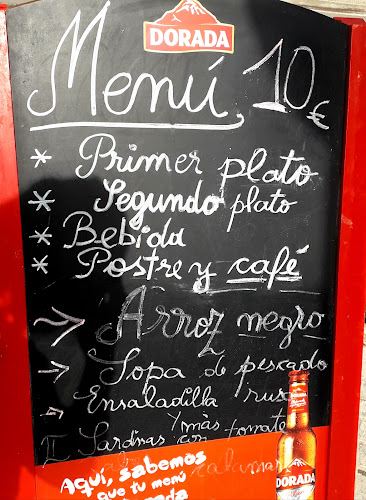 DORADA
Menú 10 €
* Primer plato
* Segundo plato
* Bebida
* Postre y café
Arroz negro
Sopa de pescado
Ensaladilla rusa
y más
Sardinas con tomate
Aquí, sabemos
que tu menú
DORADA